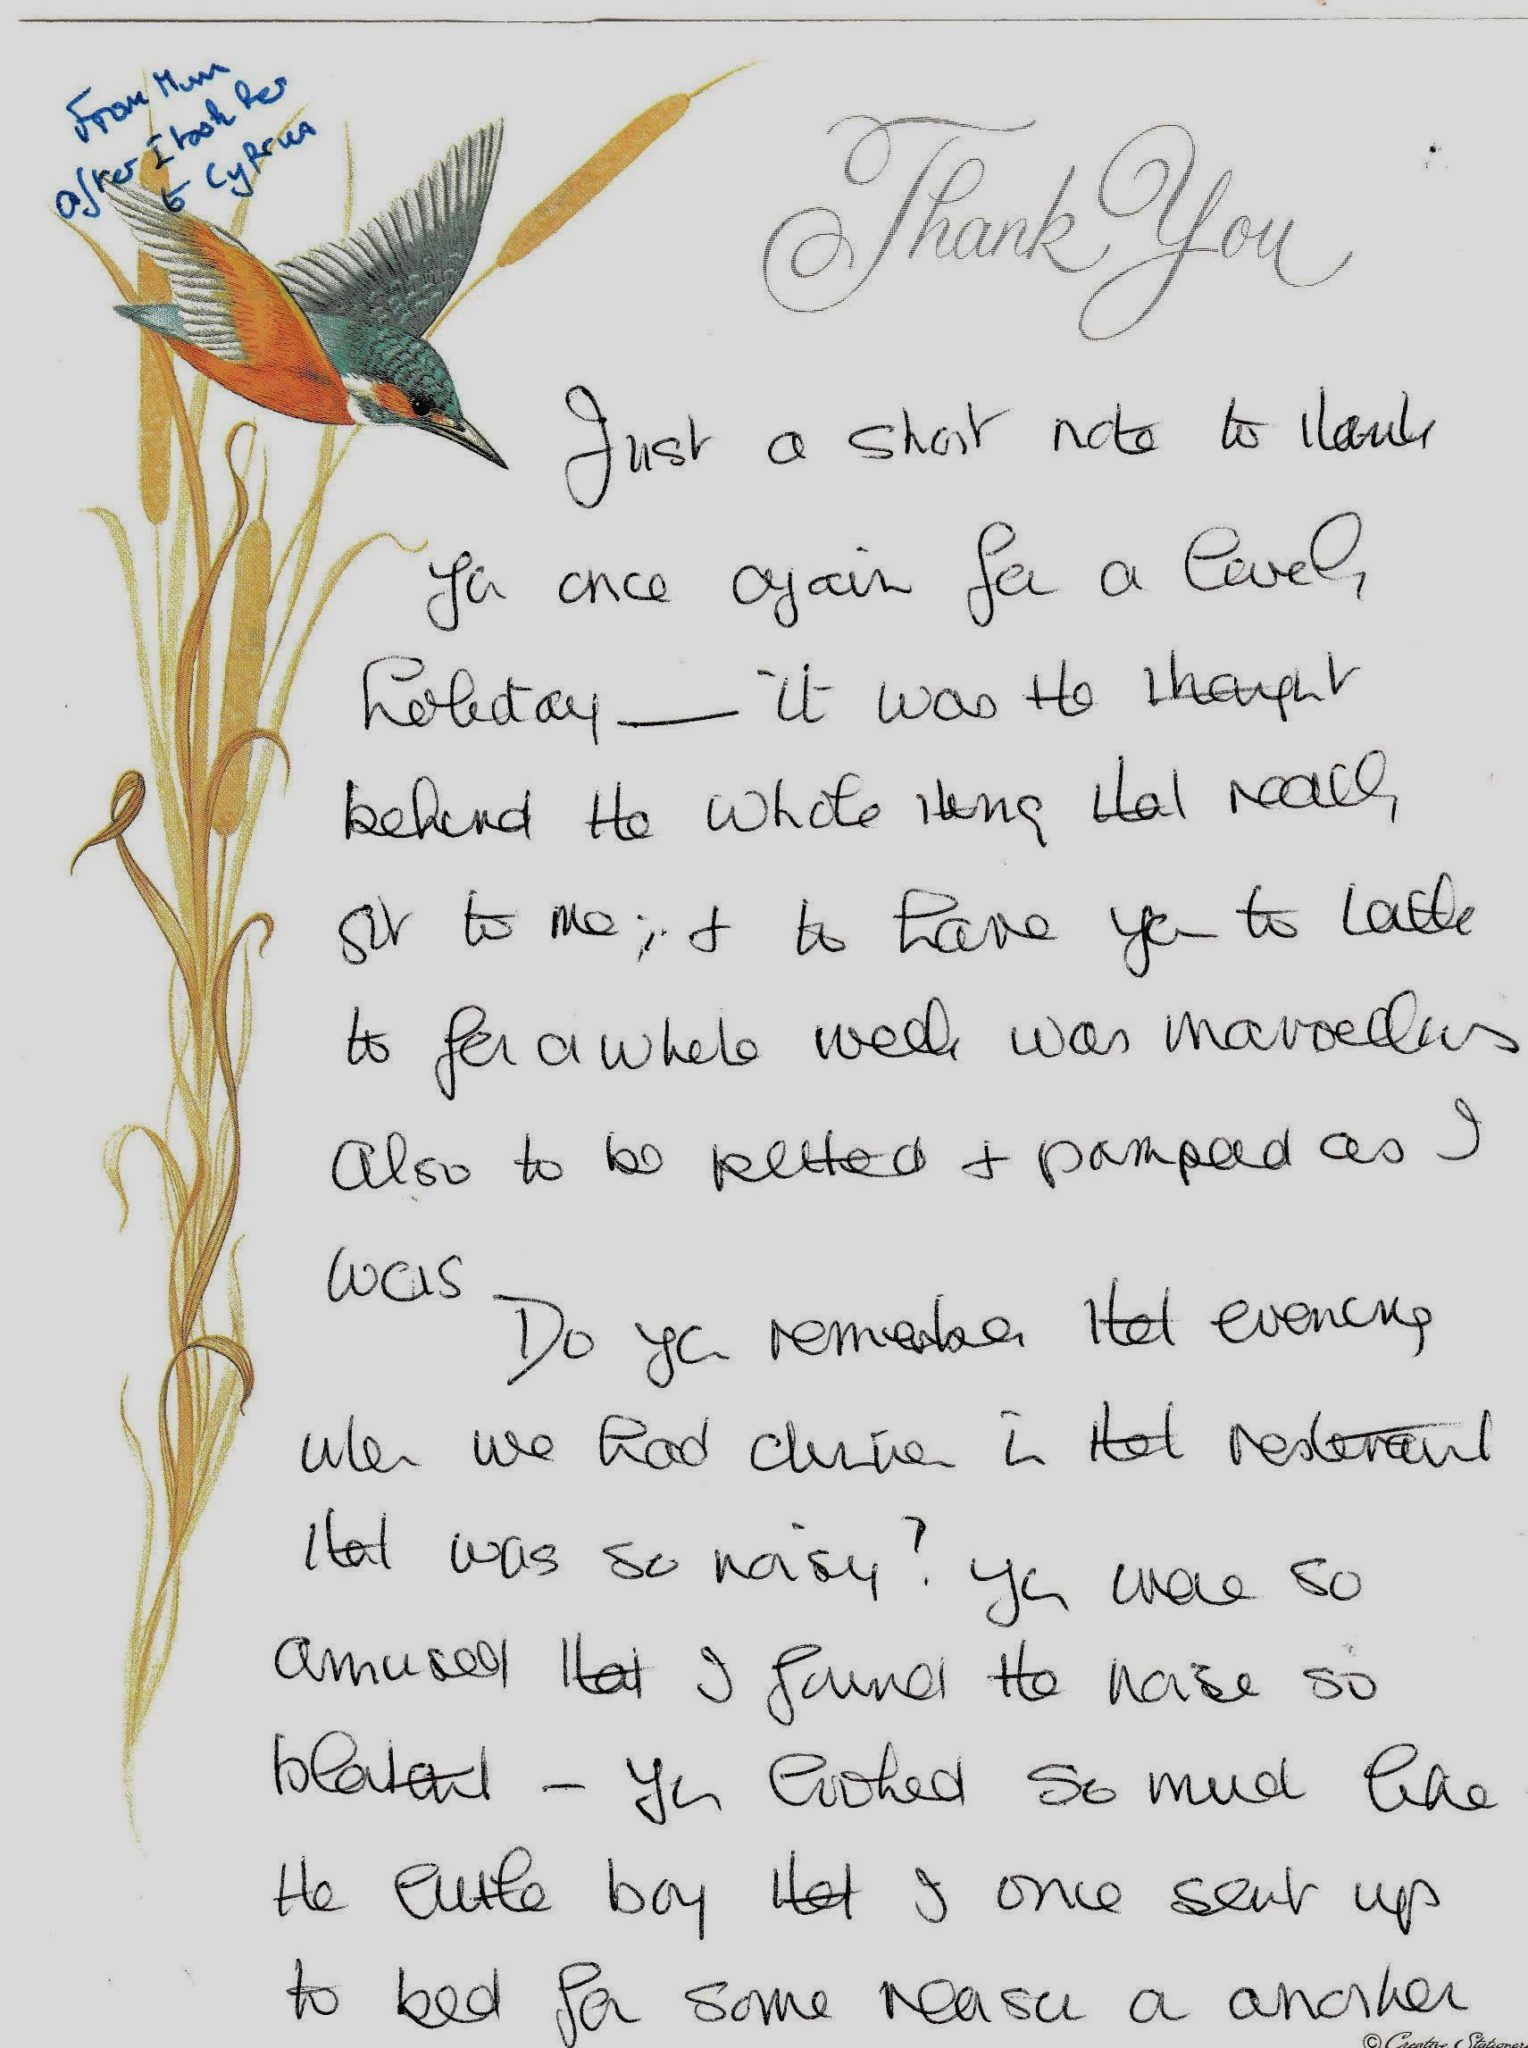 From Mum
after I took her
to Cyprus
Thank You
Just a short note to thank
you once again for a lovely
holiday — it was the thought
behind the whole thing that really
got to me; & to have you to talk
to for a whole week was marvellous
Also to be petted & pampered as I
was
Do you remember that evening
when we had dinner in that resteraunt
that was so noisy? You were so
amused that I found the noise so
blatant - you looked so much like
the little boy that I once sent up
to bed for some reason or another
© Creative Stationery